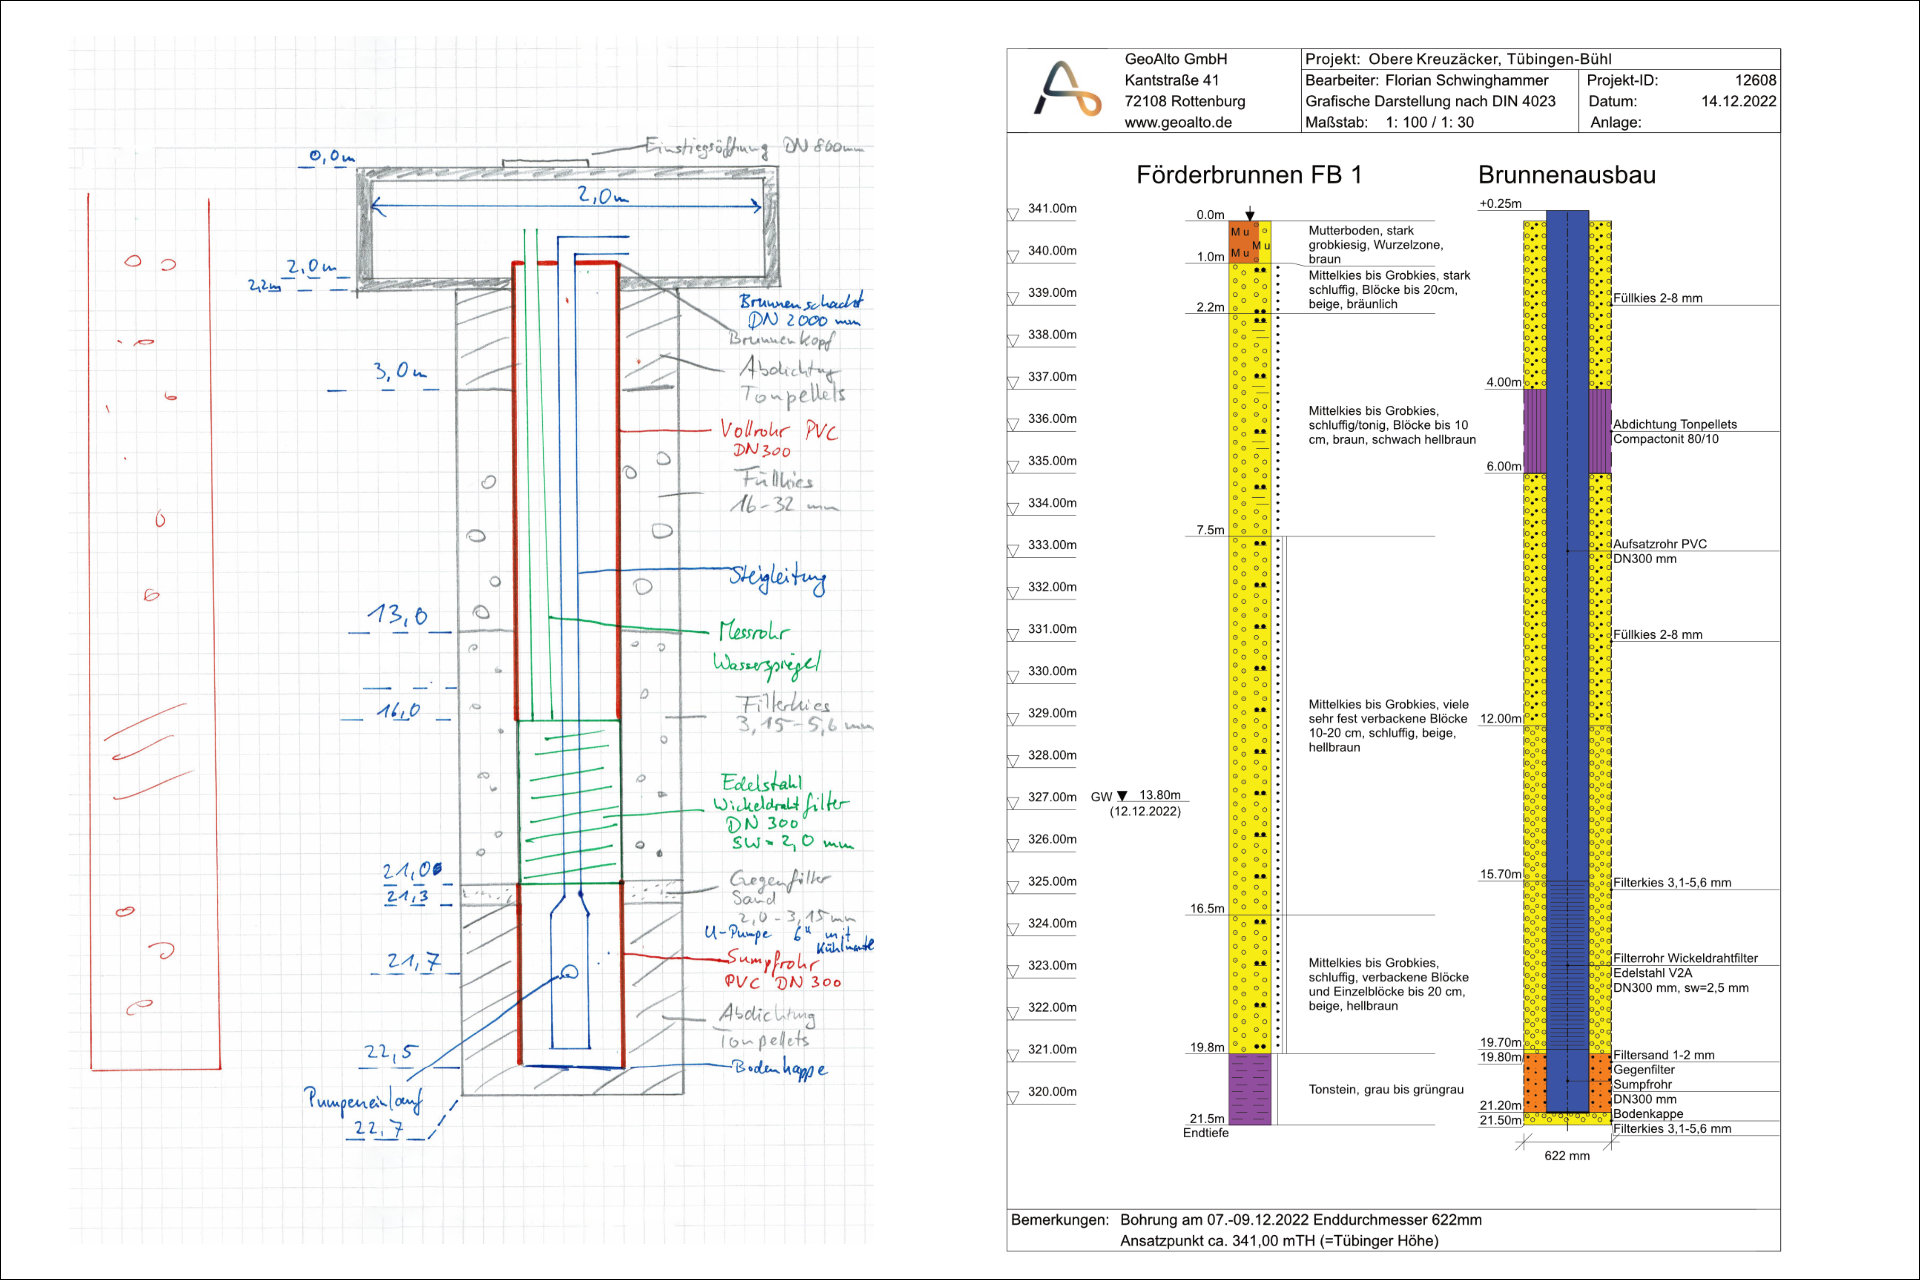 Einstiegsöffnung DN 800mm
0,0m
2,0m
2,0m
2,2m
Brunnenschacht
DN 2000 mm
Brunnenkopf
3,0m
Abdichtung
Tonpellets
Vollrohr PVC
DN300
Füllkies
16-32 mm
Steigleitung
13,0
Messrohr
Wasserspiegel
16,0
Filterkies
3,15-5,6 mm
Edelstahl
Wickeldrahtfilter
DN 300
SW = 2,0 mm
21,0
21,3
Gegenfilter
Sand
2,0-3,15mm
U-Pumpe 6" mit
21,7
Sumpfrohr
PVC DN 300
Abdichtung
Tonpellets
22,5
Bodenkappe
Pumpeneinlauf
22,7
GeoAlto GmbH
Kantstraße 41
72108 Rottenburg
www.geoalto.de
Projekt: Obere Kreuzäcker, Tübingen-Bühl
Bearbeiter: Florian Schwinghammer
Grafische Darstellung nach DIN 4023
Maßstab: 1: 100 / 1: 30
Projekt-ID: 12608
Datum: 14.12.2022
Anlage:
Förderbrunnen FB 1
341.00m
340.00m
339.00m
338.00m
337.00m
336.00m
335.00m
334.00m
333.00m
332.00m
331.00m
330.00m
329.00m
328.00m
327.00m
326.00m
325.00m
324.00m
323.00m
322.00m
321.00m
320.00m
GW 13.80m
(12.12.2022)
0.0m
Mu
Mu
Mu
1.0m
2.2m
7.5m
16.5m
19.8m
21.5m
Endtiefe
Mutterboden, stark
grobkiesig, Wurzelzone,
braun
Mittelkies bis Grobkies, stark
schluffig, Blöcke bis 20cm,
beige, bräunlich
Mittelkies bis Grobkies,
schluffig/tonig, Blöcke bis 10
cm, braun, schwach hellbraun
Mittelkies bis Grobkies, viele
sehr fest verbackene Blöcke
10-20 cm, schluffig, beige,
hellbraun
Mittelkies bis Grobkies,
schluffig, verbackene Blöcke
und Einzelblöcke bis 20 cm,
beige, hellbraun
Tonstein, grau bis grüngrau
Brunnenausbau
+0.25m
4.00m
6.00m
12.00m
15.70m
19.70m
19.80m
21.20m
21.50m
622 mm
Füllkies 2-8 mm
Abdichtung Tonpellets
Compactonit 80/10
Aufsatzrohr PVC
DN300 mm
Füllkies 2-8 mm
Filterkies 3,1-5,6 mm
Filterrohr Wickeldrahtfilter
Edelstahl V2A
DN300 mm, sw=2,5 mm
Filtersand 1-2 mm
Gegenfilter
Sumpfrohr
DN300 mm
Bodenkappe
Filterkies 3,1-5,6 mm
Bemerkungen: Bohrung am 07.-09.12.2022 Enddurchmesser 622mm
Ansatzpunkt ca. 341,00 mTH (=Tübinger Höhe)